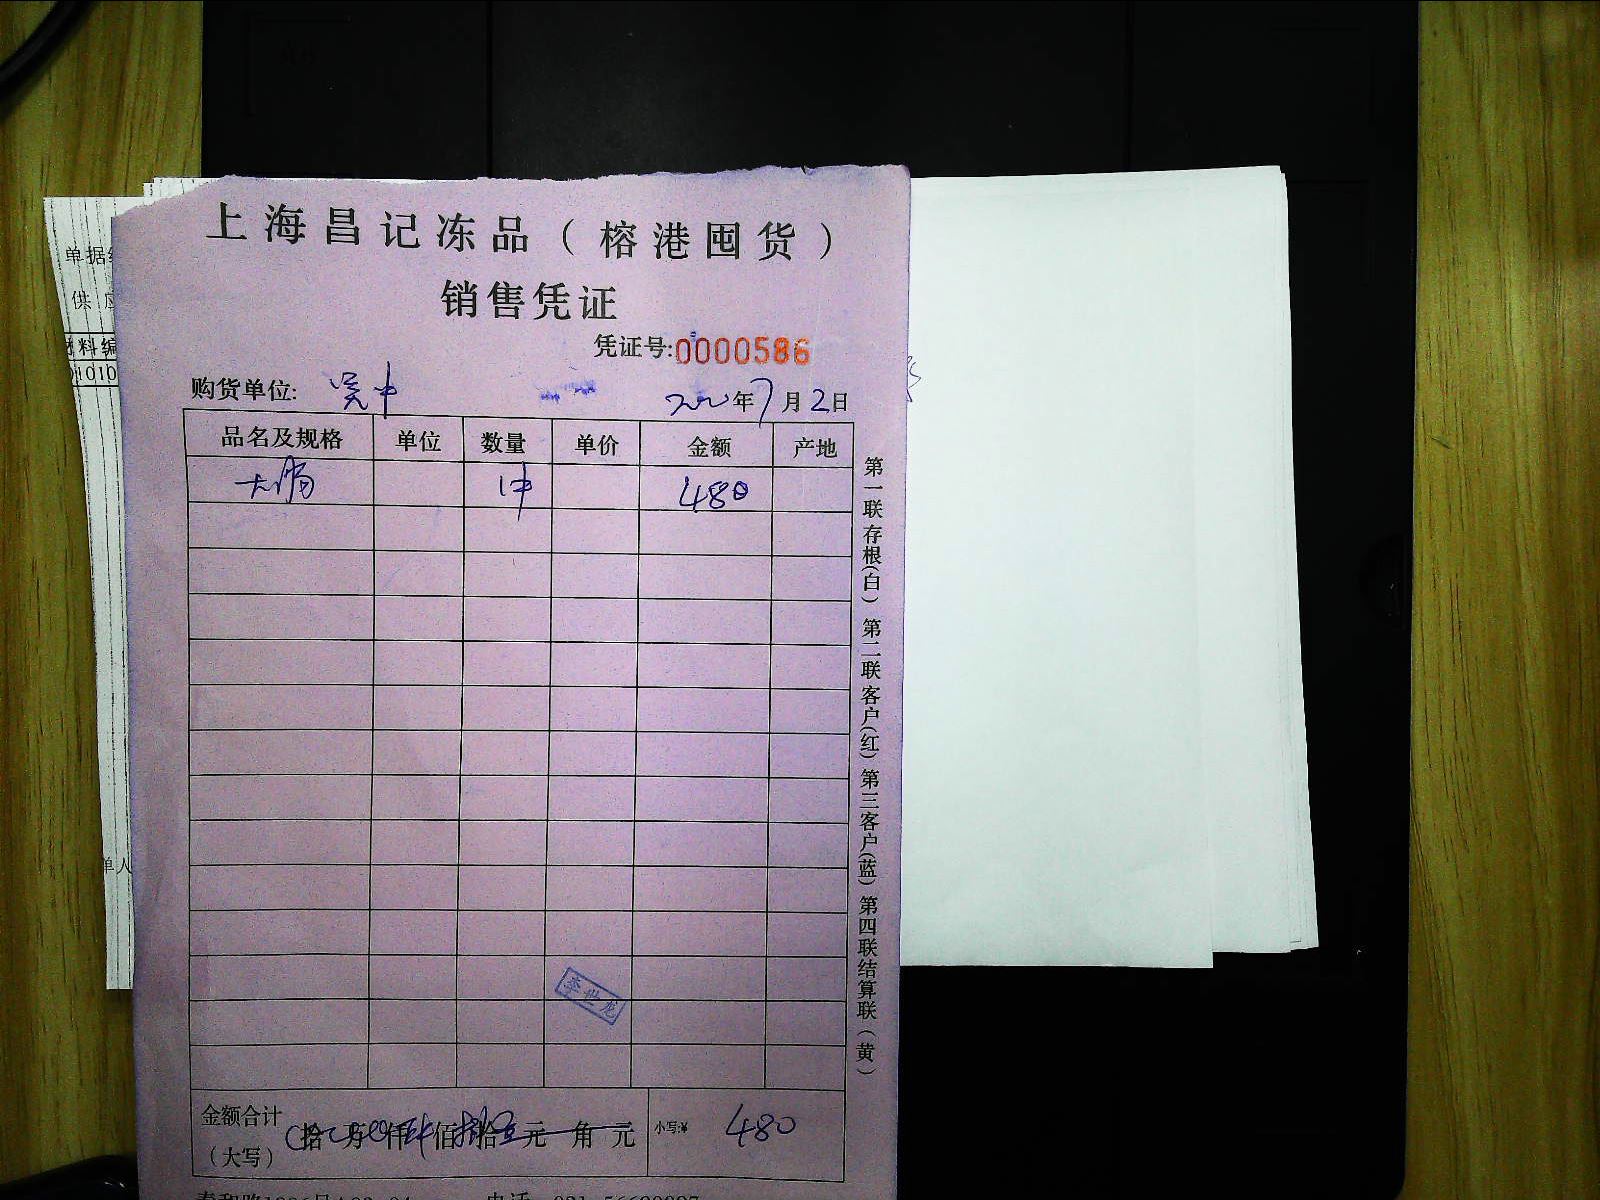 上海昌记冻品（榕港囤货）
销售凭证
凭证号:0000586
购货单位: 吴中
年7月2日
品名及规格 单位 数量 单价 金额 产地
大肠 1件 480
金额合计
（大写） 拾 万 仟 佰 拾 元 角 元 小写:¥ 480
李世龙
第一联存根(白) 第二联客户(红) 第三客户(蓝) 第四联结算联(黄)
单据
供应
料编
单人